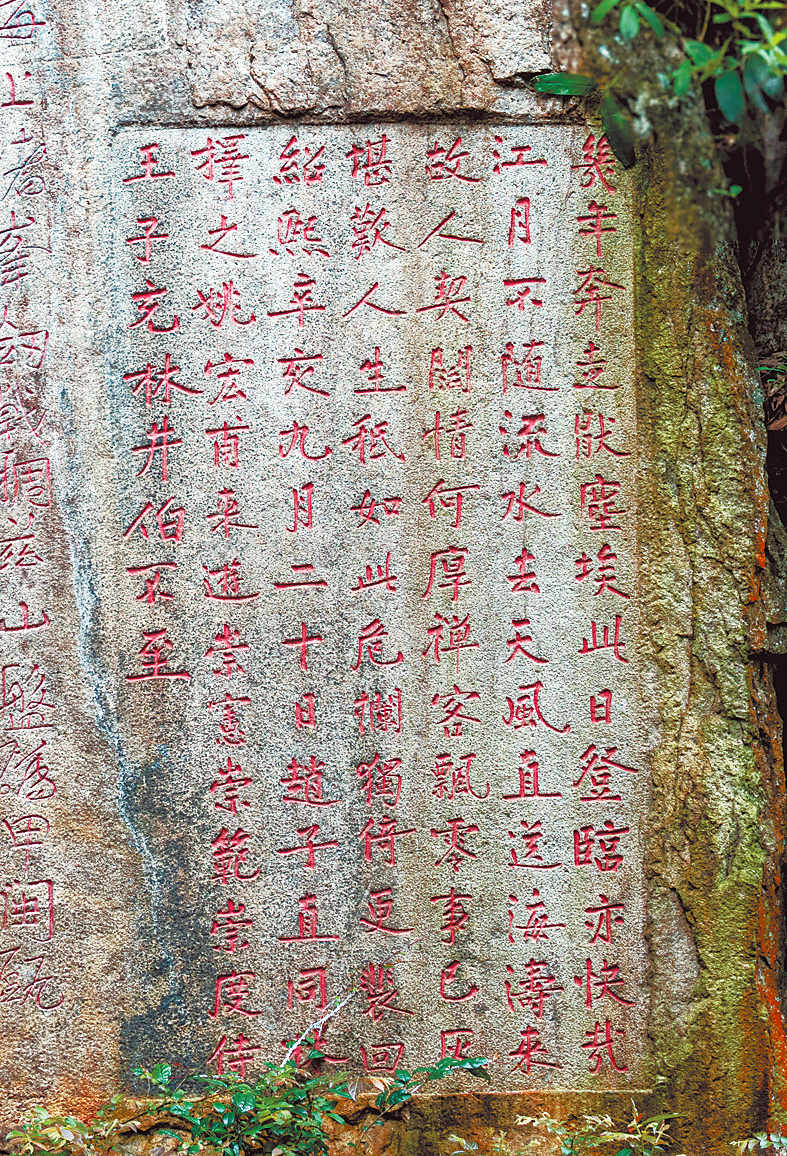 幾年奔走猒塵埃此日登臨亦快哉
江月不隨流水去天風直送海濤來
故人契闊情何厚禪客飄零事已灰
堪歎人生秖如此危欄獨倚更裴回
紹熙辛亥九月二十日趙子直同林
擇之姚宏甫来遊崇憲崇範崇度侍
王子充林井伯不至
上茲山盤礴甲閩甌